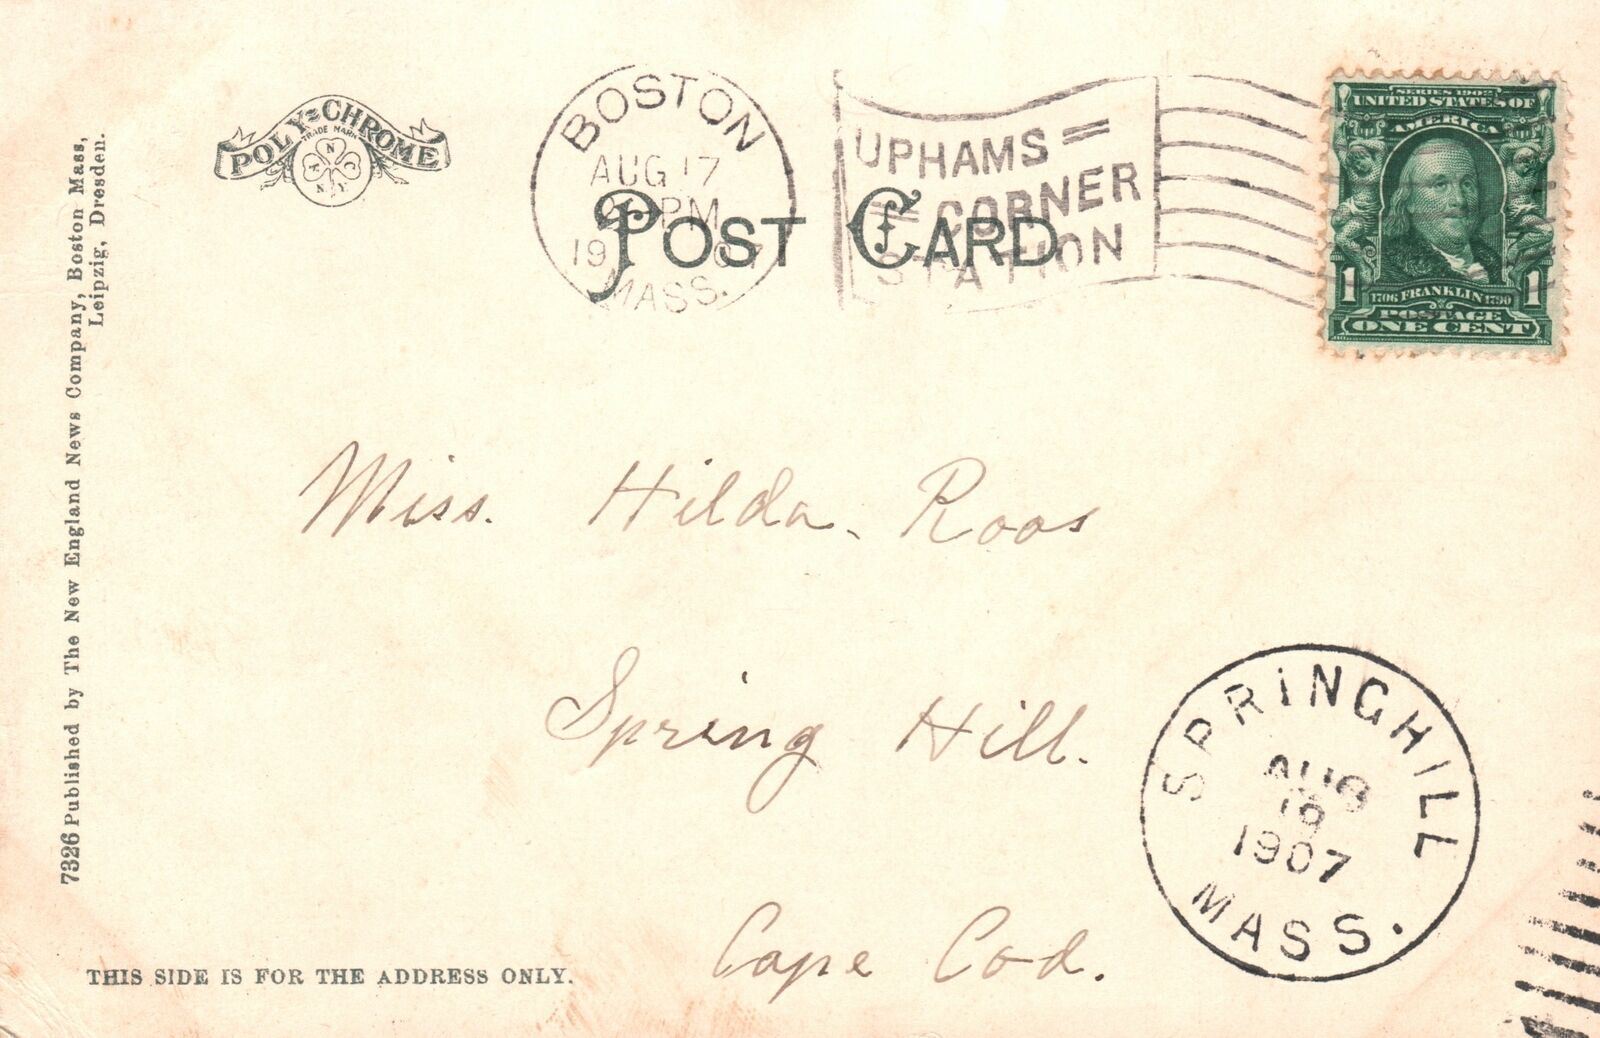 POLY=CHROME
TRADE MARK
N
A C
N.Y.
BOSTON
AUG 17
PM
1907
MASS.
UPHAMS =
= CORNER
STATION
POST CARD
SERIES 1902
UNITED STATES OF
AMERICA
1 1
1706 FRANKLIN 1790
POSTAGE
ONE CENT
7326 Published by The New England News Company, Boston Mass,
Leipzig, Dresden.
Miss. Hilda. Roos
Spring Hill.
Cape Cod.
SPRINGHILL
AUG
1907
MASS.
THIS SIDE IS FOR THE ADDRESS ONLY.